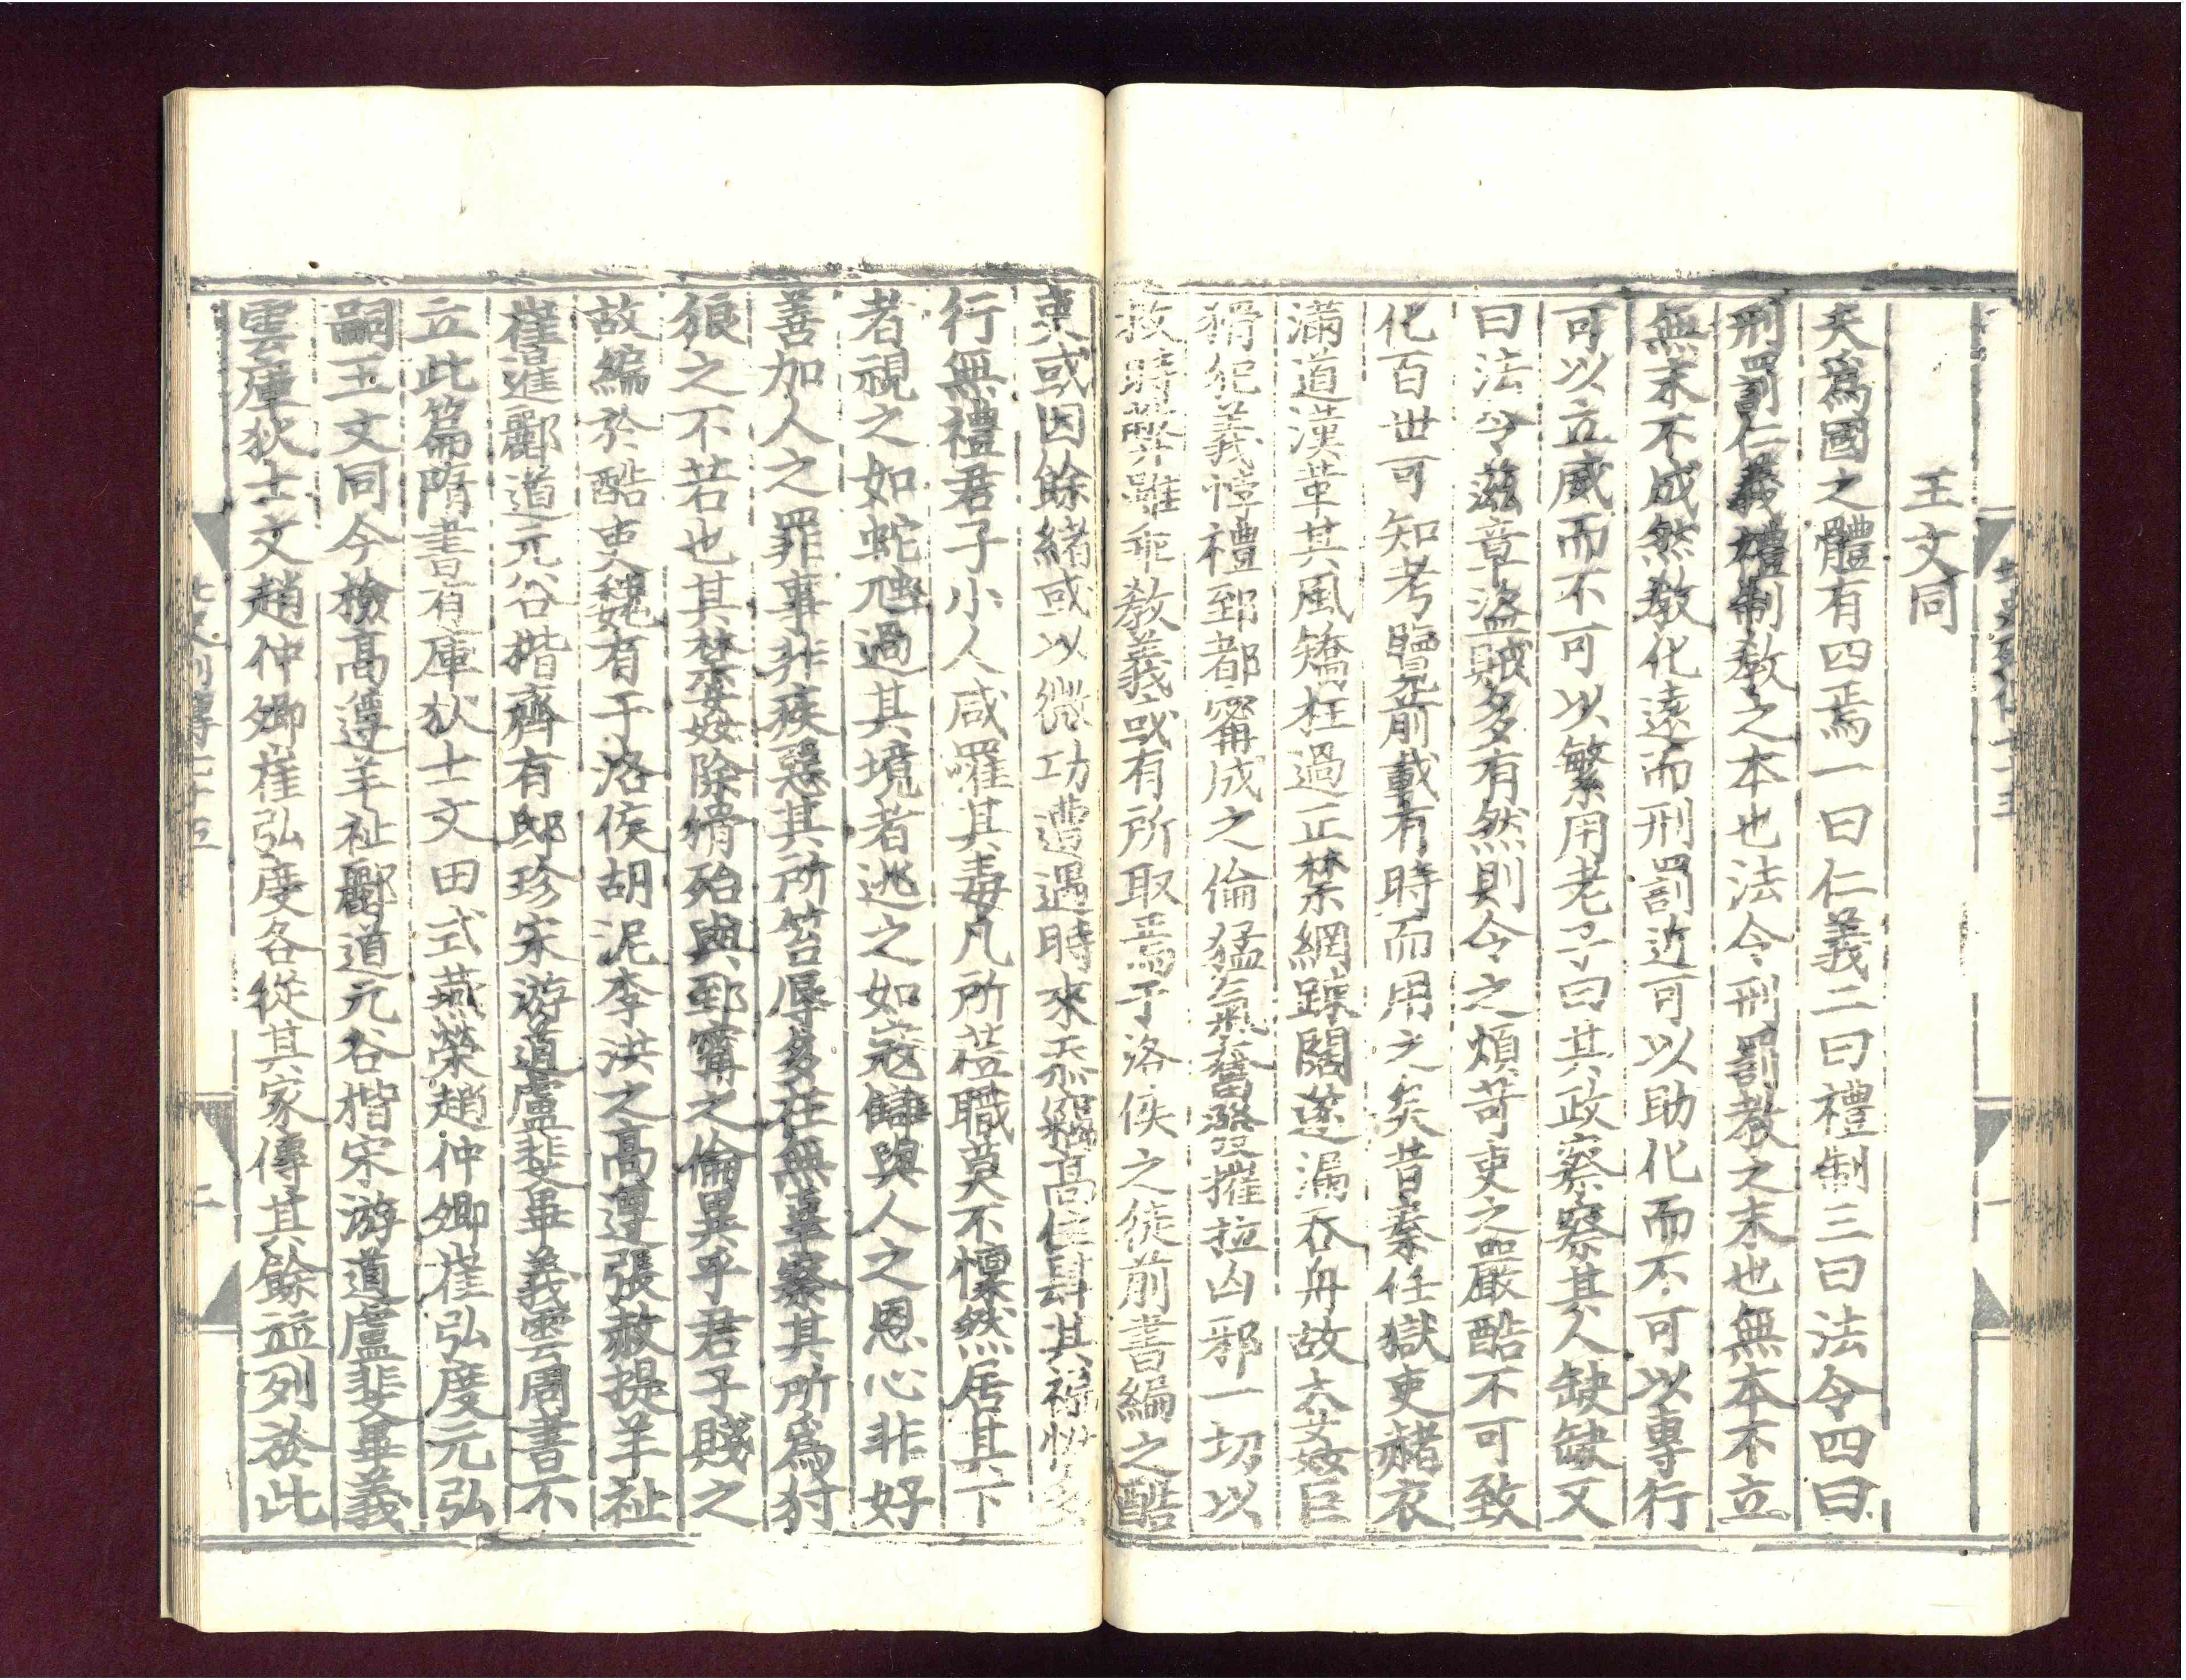 王文同
夫爲國之體有四焉一曰仁義二曰禮制三曰法令四曰
刑罰仁義禮制敎之本也法令刑罰教之末也無本不立
無末不成然敎化遠而刑罰近可以助化而不可以專行
可以立威而不可以繁用老子曰其政察察其人缺缺又
曰法令滋章盜賊多有然則令之煩苛吏之嚴酷不可致
化百世可知考覽前載有時而用之矣昔秦任獄吏赭衣
滿道漢革其風矯枉過正禁網踈闊遂漏吞舟故大姦巨
猾犯義悖禮郅都甯成之倫猛氣奮發摧拉凶邪一切以
救時弊雖乖敎義或有所取焉于洛侯之徒前書編之酷
吏或因餘緒或以微功遭遇時來忝竊高位肆其褊性多
行無禮君子小人咸罹其毒凡所莅職莫不懍然居其下
者視之如蛇虺過其境者逃之如寇讎與人之恩心非好
善加人之罪事非疾惡其所笞辱多在無辜察其所爲豺
狼之不若也其禁姦除猾殆與郅甯之倫異乎君子賤之
故編於酷吏魏有于洛侯胡泥李洪之高遵張赦提羊祉
崔暹酈道元谷楷齊有邸珍宋游道盧斐畢義雲周書不
立此篇隋書有庫狄士文田式燕榮趙仲卿崔弘度元弘
嗣王文同今檢高遵羊祉酈道元谷楷宋游道盧斐畢義
雲庫狄士文趙仲卿崔弘度各從其家傳其餘並列於此
北史列傳七十五
二